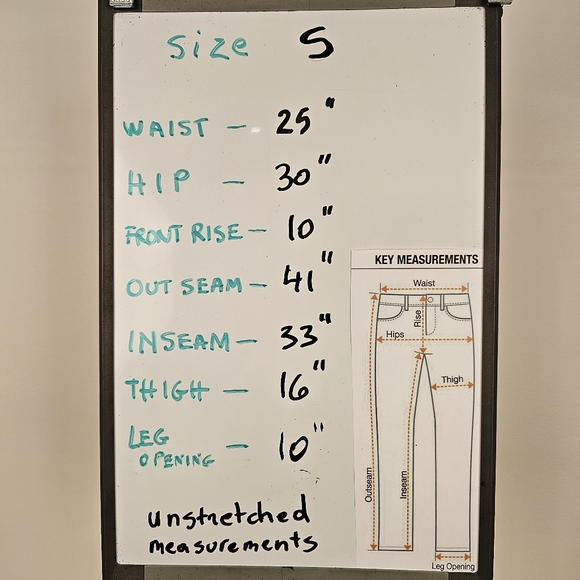 Size S
WAIST – 25"
HIP – 30"
FRONT RISE – 10"
OUT SEAM – 41"
INSEAM – 33"
THIGH – 16"
LEG
OPENING – 10"
unstretched
measurements
KEY MEASUREMENTS
Waist
Rise
Hips
Thigh
Outseam
Inseam
Leg Opening